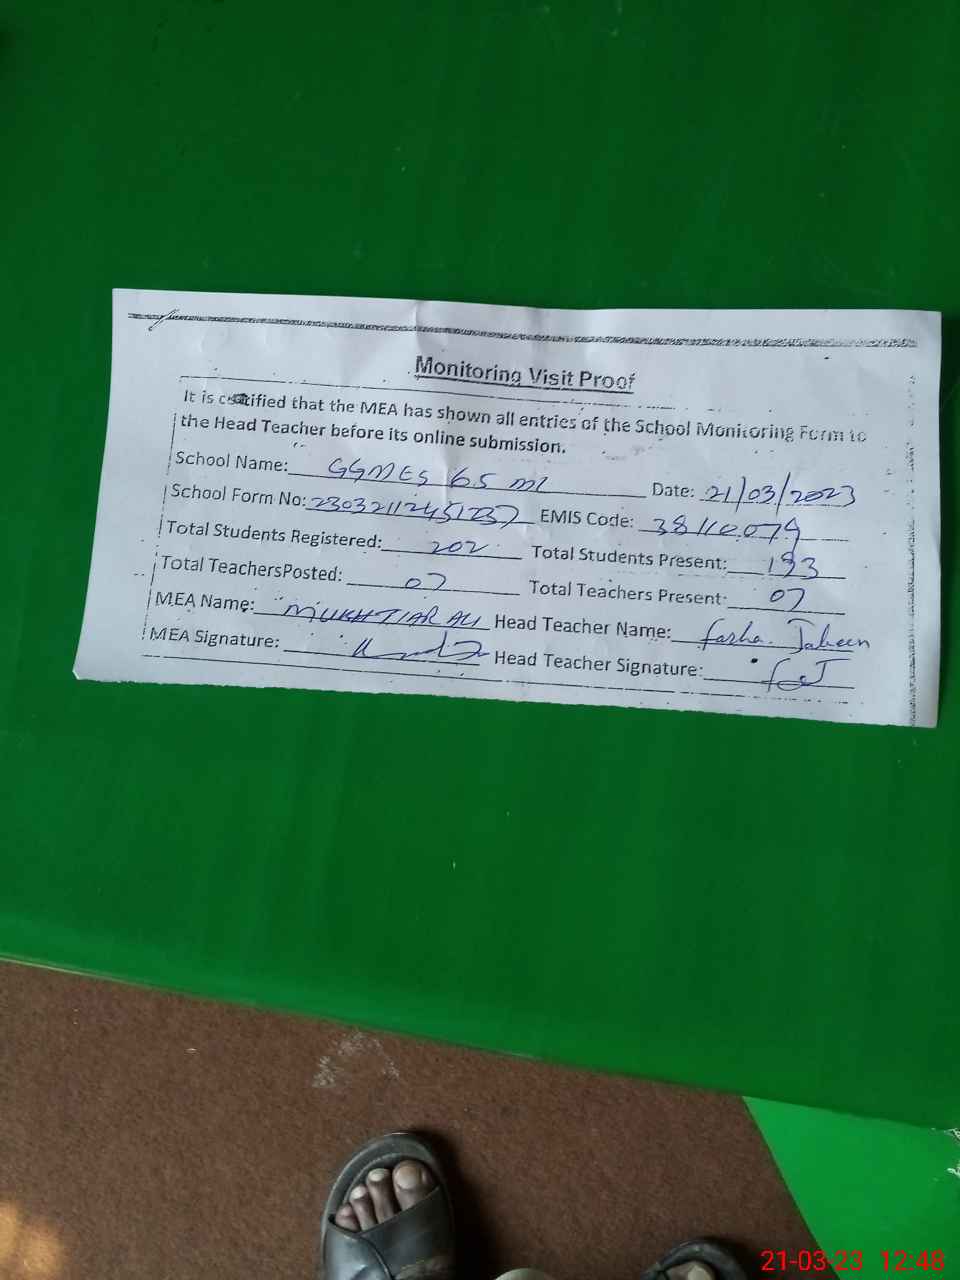 Monitoring Visit Proof
It is certified that the MEA has shown all entries of the School Monitoring Form to
the Head Teacher before its online submission.
School Name: GGMES 65 ML Date: 21/03/2023
School Form No: 23032112451237 EMIS Code: 38110079
Total Students Registered: 202 Total Students Present: 193
Total TeachersPosted: 07 Total Teachers Present: 07
MEA Name: MUKHTIAR ALI Head Teacher Name: Farha Jabeen
MEA Signature: Head Teacher Signature: FJ
21-03-23 12:48